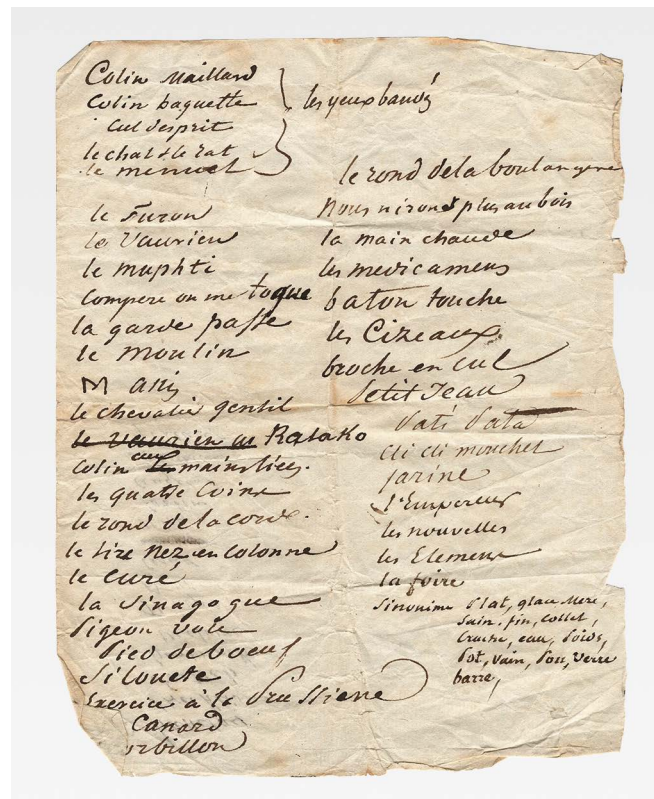 Colin Maillard
Colin baguette
Cul d'esprit
le chat & le rat
le menuet
les yeux bandés
le Furon
le Vaurien
le muphti
Compere on me toque
la garde passe
le moulin
M anis
le chevalié gentil
le vaurien au Ratako
Colin aux mains liées.
les quatre Coins
le rond de la corde.
le tire Nez en Colonne
le Curé
la Sinagogue
Pigeon vole
Pied de boeuf
Silouete
Exercice à la Prussiene
Canard
rbillon
le rond de la boulangere
Nous nirons plus au bois
la main chaude
les medicamens
baton touche
les Cizeaux
broche en Cul
Petit Jean
Pati Pata
Cli cli mouchet
farine
l'Empereur
les nouvelles
les Elemens
la foire
Sinonime Plat, glace Mere,
Sain, fin, Collet,
Cruche, eau, Poids,
Pot, Vain, Pou, Verre
barre,